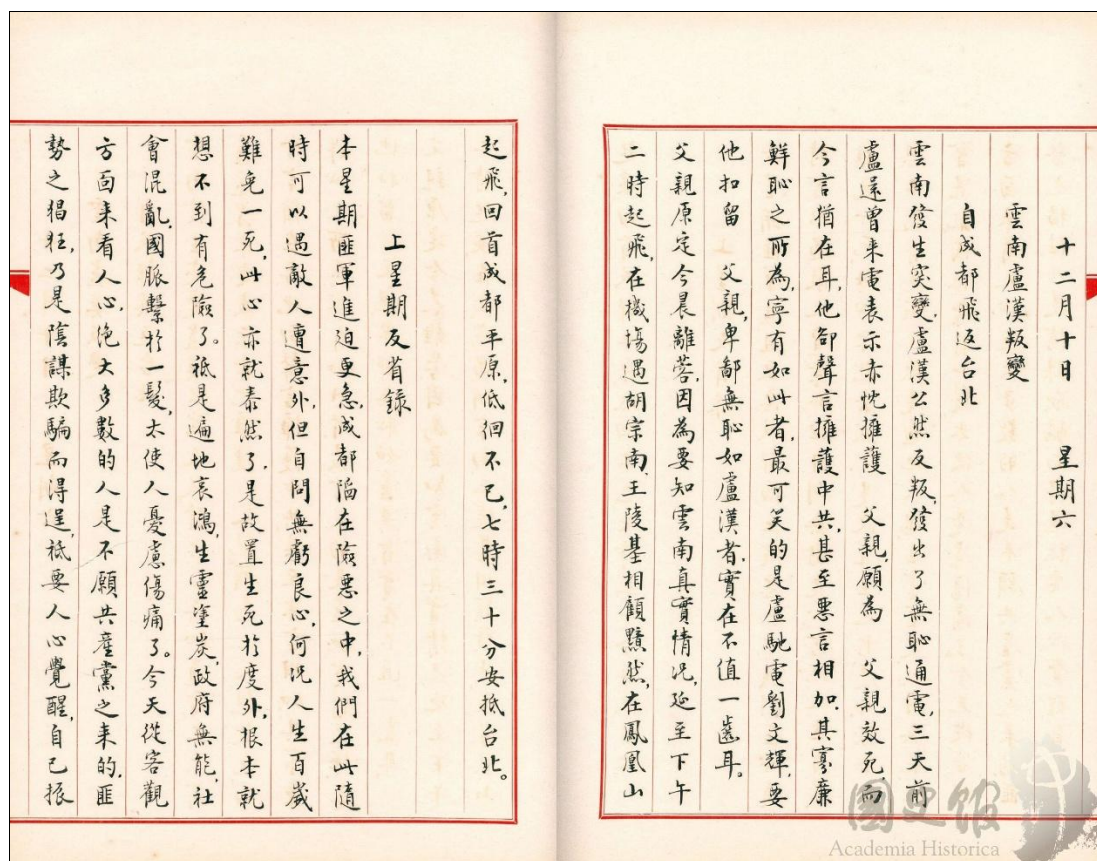 十二月十日　星期六
雲南盧漢叛變
自成都飛返台北
雲南發生突變，盧漢公然反叛，發出了無恥通電，三天前
盧逆曾來電表示赤忱擁護　父親，願為　父親効死，而
今言猶在耳，他卻聲言擁護中共，甚至惡言相加，其寡廉
鮮恥之所為，寧有如此者，最可笑的是盧馳電劉文輝，要
他扣留　父親，卑鄙無恥如盧漢者，實在不值一齒耳。
父親原定今晨離蓉，因為要知雲南真實情況，延至下午
二時起飛，在機場遇胡宗南，王陵基相顧黯然，在鳳凰山
起飛，回首成都平原，低徊不已，七時三十分安抵台北。
上星期反省錄
本星期匪軍進迫更急，成都陷在險惡之中，我們在此隨
時可以遇敵人遭意外，但自問無虧良心，何況人生百歲
難免一死，此心亦就泰然了，是故置生死於度外，根本就
想不到有危險了。祗是遍地哀鴻，生靈塗炭，政府無能，社
會混亂，國脈繫於一髮，太使人憂慮傷痛了。今天從客觀
方面來看人心，絕大多數的人是不願共產黨之來的，匪
勢之猖狂，乃是陰謀欺騙而得逞，祗要人心覺醒，自己振
國史館
Academia Historica